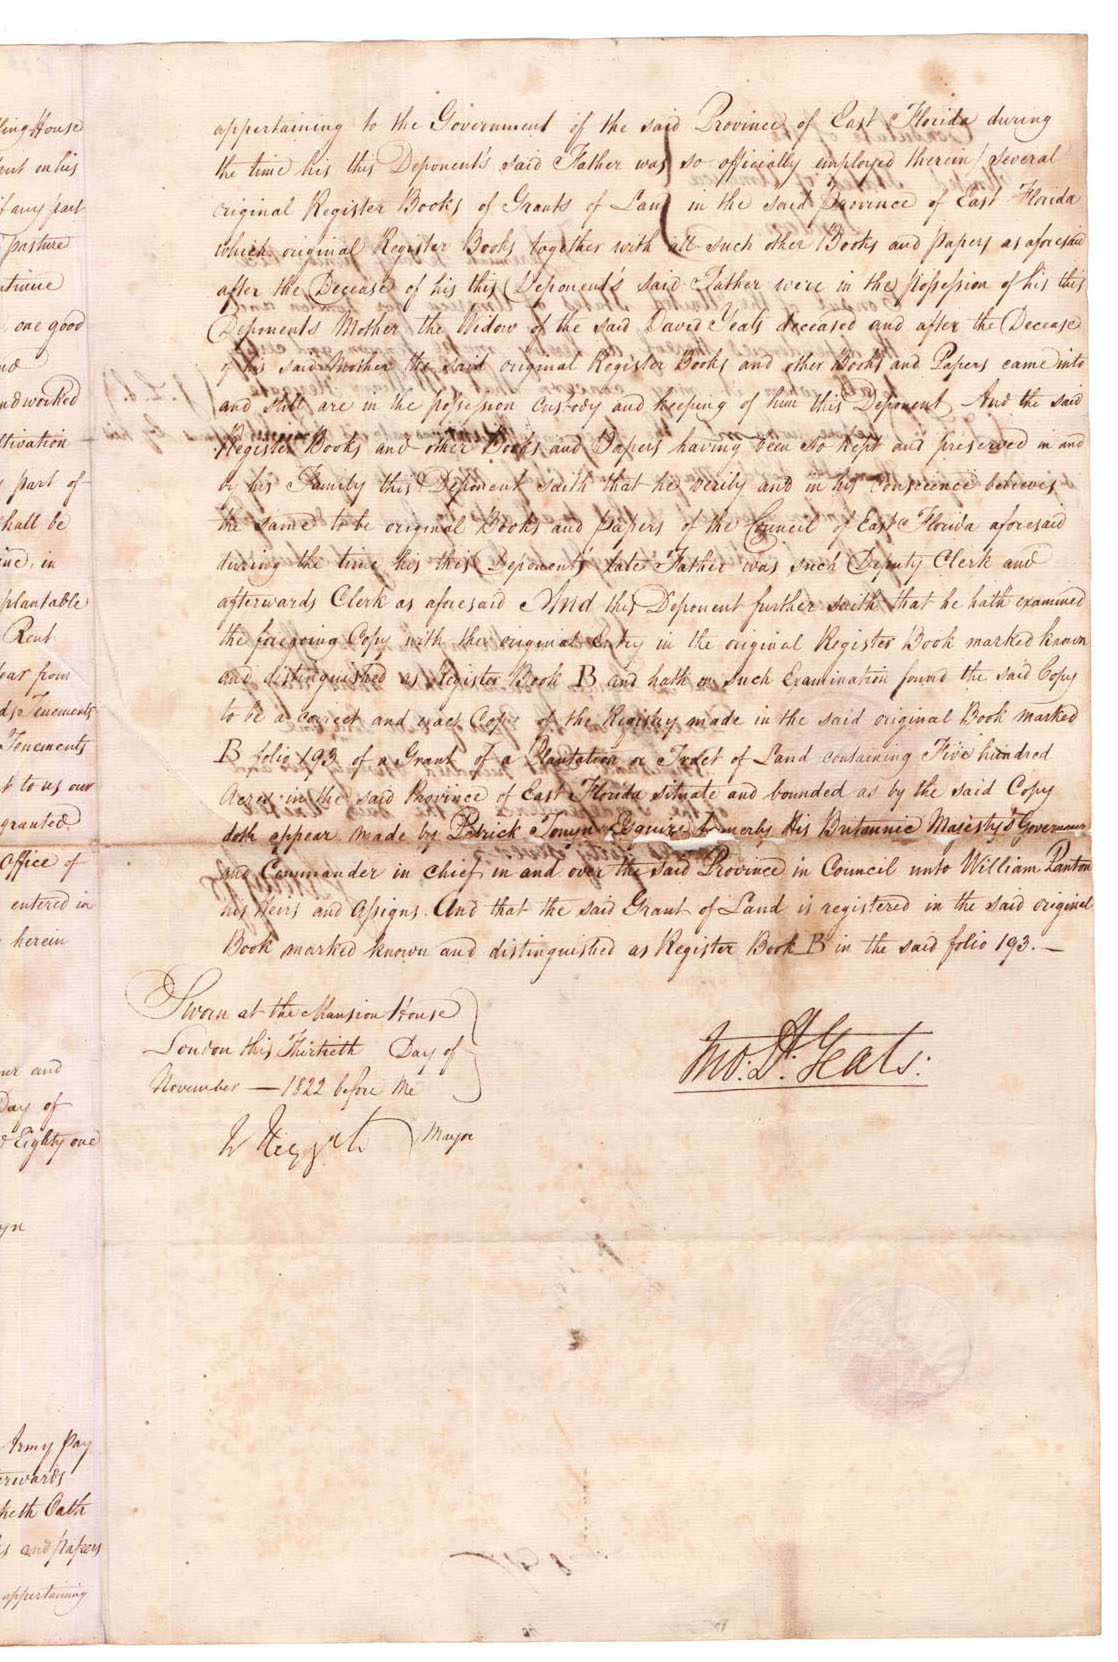 ling House
rut on his
f any part
pasture
ntinue
one good
nd
nd worked
ltivation
part of
hall be
ine, in
plantable
Rent
ear from
ds Tenements
Tenements
t to us our
granted
Office of
entered in
herein
our and
Day of
d Eighty one
yn
Army Pay
erwards
keth Oath
ks and papers
appertaining
appertaining to the Government of the said Province of East Florida during
the time his this Deponent's said Father was so officially employed therein / several
original Register Books of Grants of Land in the said Province of East Florida
which original Register Books together with all such other Books and papers as aforesaid
after the Decease of his this Deponent's said Father were in the possession of his this
Deponents Mother the Widow of the said David Yeats deceased and after the Decease
of his said Mother the said original Register Books and other Books and Papers came into
and still are in the possession custody and keeping of him this Deponent And the said
Register Books and other Books and Papers having been so kept and preserved in and
by his Family this Deponent saith that he verily and in his conscience believes
the same to be original Books and papers of the Council of East Florida aforesaid
during the time his this Deponents late Father was such Deputy Clerk and
afterwards Clerk as aforesaid And this Deponent further saith that he hath examined
the foregoing Copy with the original Entry in the original Register Book marked known
and distinguished as Register Book B and hath on such Examination found the said Copy
to be a correct and exact Copy of the Registry made in the said original Book marked
B folio 193 of a Grant of a Plantation or Tract of Land containing Five hundred
Acres in the said Province of East Florida situate and bounded as by the said Copy
doth appear made by Patrick Tonyn Esquire formerly His Britannic Majesty's Governour
and Commander in chief in and over the said Province in Council unto William Panton
his Heirs and Assigns. And that the said Grant of Land is registered in the said original
Book marked known and distinguished as Register Book B in the said folio 193. —
Sworn at the Mansion House
London this Thirtieth Day of
November — 1822 before Me
W Heygate Mayor
Tho: Yeats: